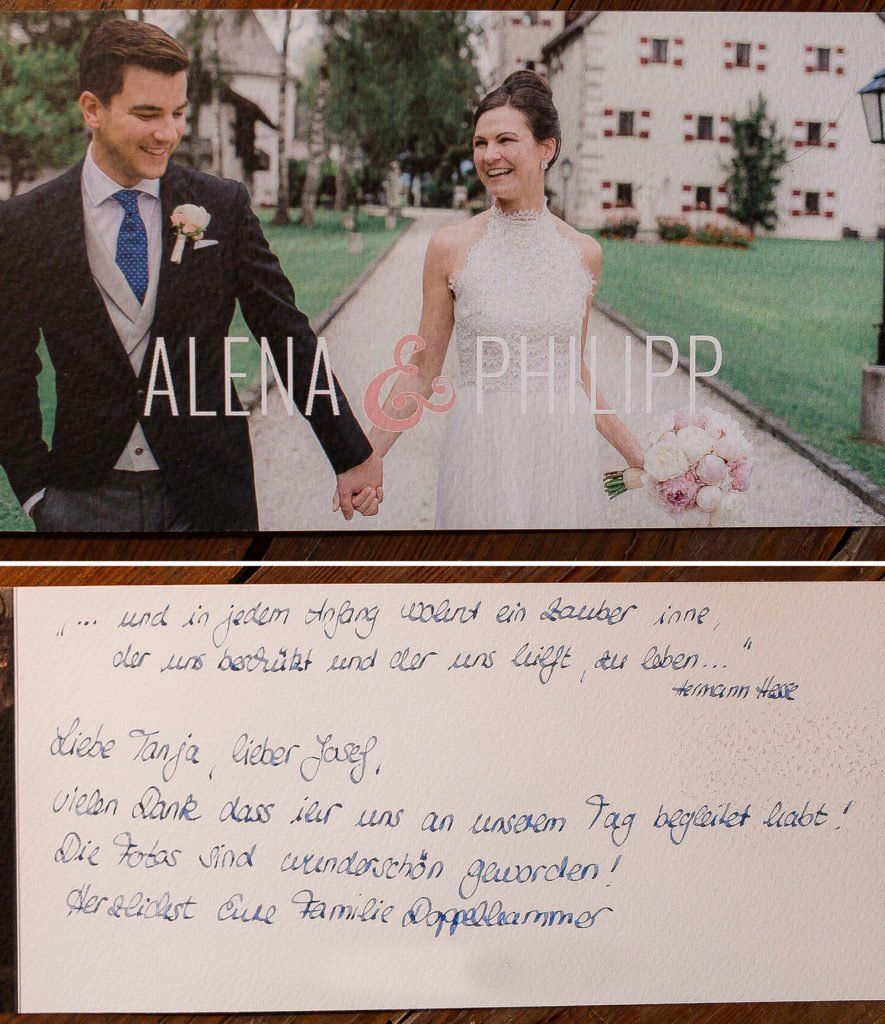 ALENA & PHILIPP
„... und in jedem Anfang wohnt ein Zauber inne,
der uns beschützt und der uns hilft, zu leben..."
Hermann Hesse
Liebe Tanja, lieber Josef,
vielen Dank dass ihr uns an unserem Tag begleitet habt!
Die Fotos sind wunderschön geworden!
Herzlichst Eure Familie Doppelhammer